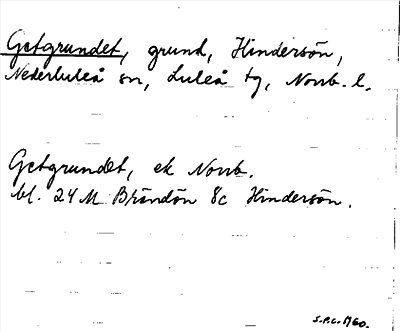 Getgrundet, grund, Hindersön,
Nederluleå sn, Luleå tg, Norrb. l.
Getgrundet, ek Norrb.
bl. 24 M Brändön 8c Hindersön.
S.P.C. 1960.